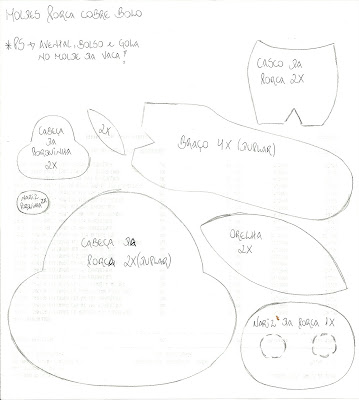 MOLDES PORCA COBRE BOLO
*PS → AVENTAL, BOLSO E GOLA
NO MOLDE DA VACA!
CASCO DA
PORCA 2X
CABEÇA
DA
PORQUINHA
2X
2X
BRAÇO 4X (DUPLAR)
NARIZ DA
PORQUINHA
CABEÇA DA
PORCA 2X (DUPLAR)
ORELHA
2X
NARIZ DA PORCA 1X